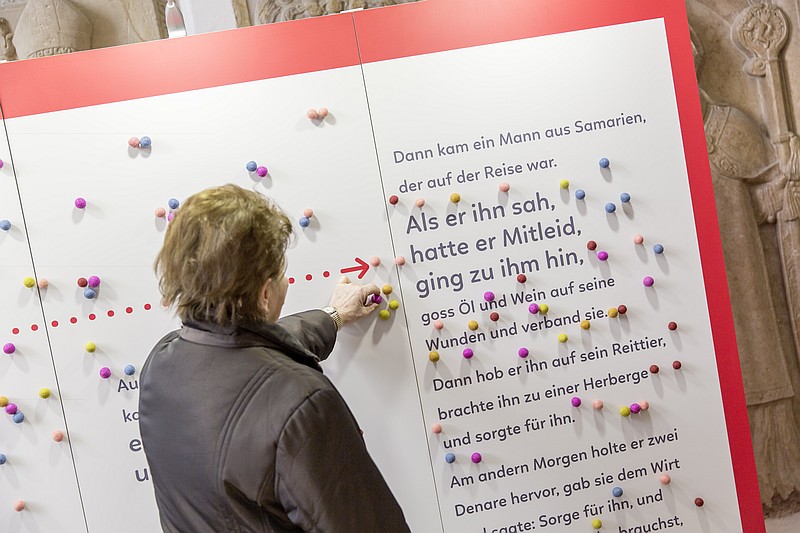 Au
ka
e
u
Dann kam ein Mann aus Samarien,
der auf der Reise war.
Als er ihn sah,
hatte er Mitleid,
ging zu ihm hin,
goss Öl und Wein auf seine
Wunden und verband sie.
Dann hob er ihn auf sein Reittier,
brachte ihn zu einer Herberge
und sorgte für ihn.
Am andern Morgen holte er zwei
Denare hervor, gab sie dem Wirt
und sagte: Sorge für ihn, und
brauchst,